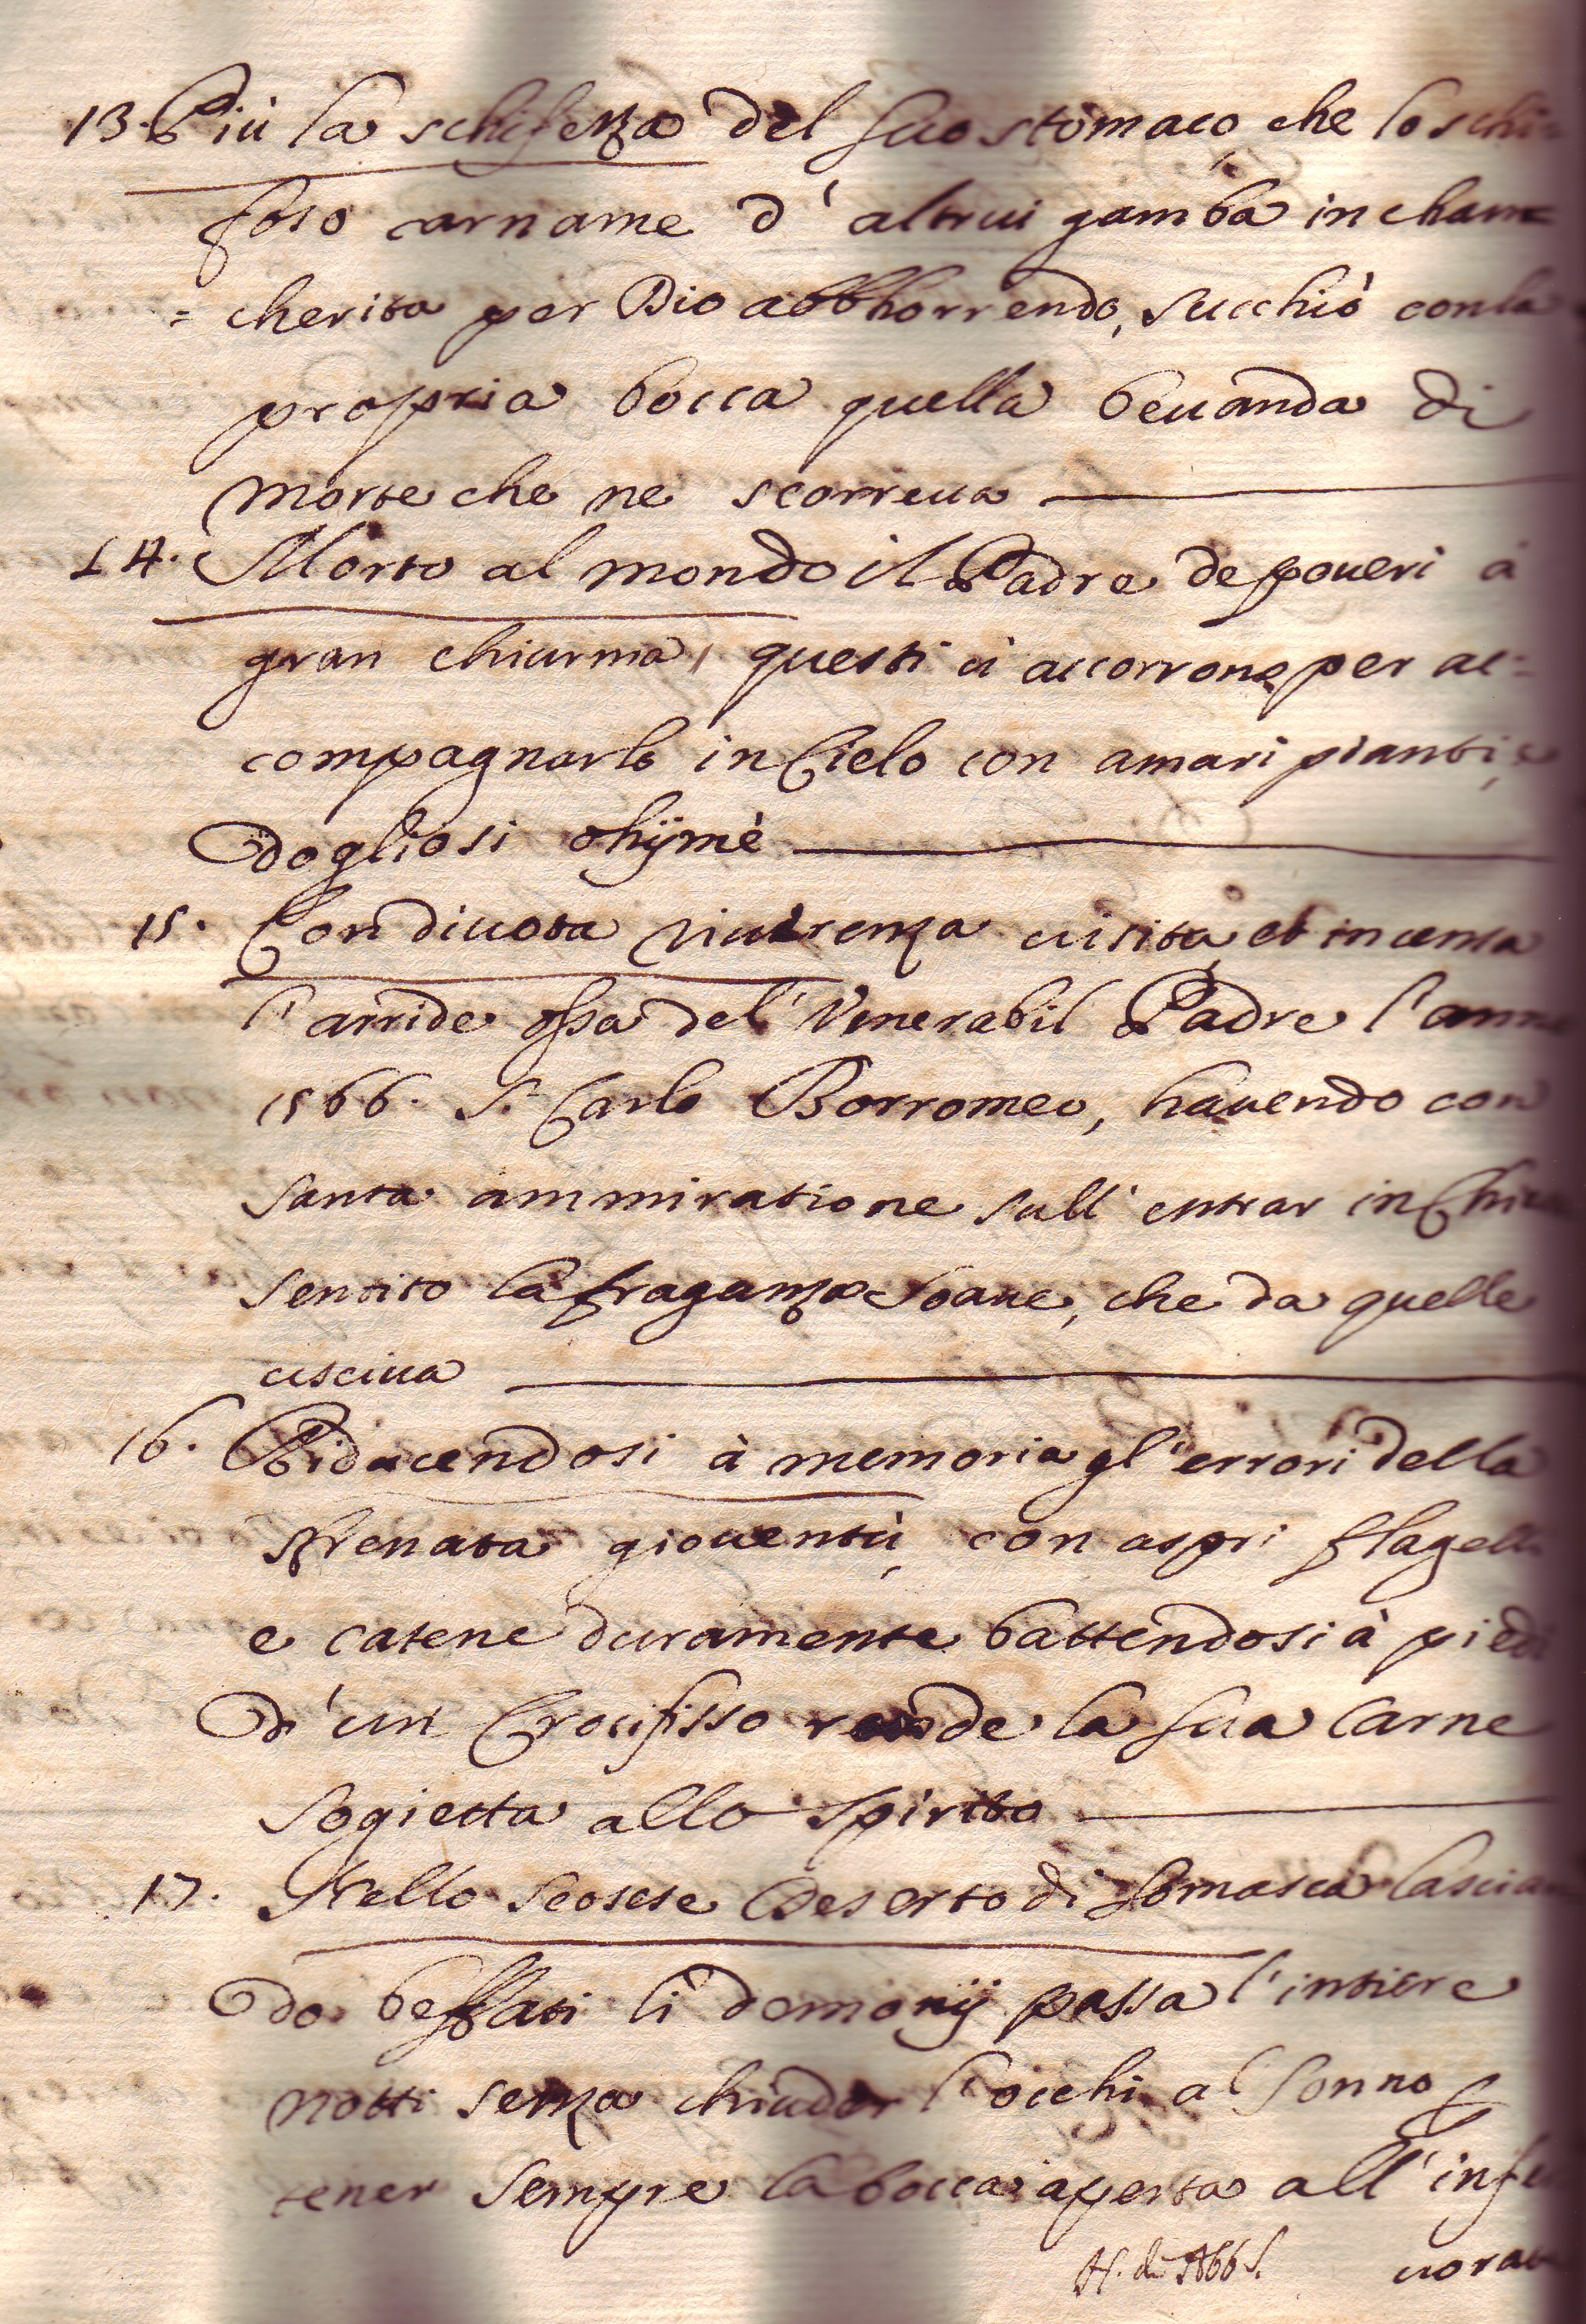 13. Più la schifezza del suo stomaco, che lo schi=
foso carname d'altrui gamba incham
= cherita per Dio abbhorrendo, succhiò con la
propria bocca quella beuanda di
morte che ne scorreua
14. Morto al mondo il Padre de poueri à
gran chiurma, questi ci accorrono, per ac=
compagnarlo in Cielo con amari pianti, e
dogliosi ohijmè
15. Con diuota riuerenza uisita, et incensa
l'arride ossa del' Venerabil Padre l'anno
1566. S. Carlo Borromeo, hauendo con
santa ammiratione sull' entrar in Chiesa
sentito la fraganza soaue, che da quelle
usciua
16. Riducendosi à memoria gl'errori della
sfrenata giouentù, con aspri flagelli
e catene duramente battendosi à piedi
d'un Crocifisso rende la sua Carne
sogietta allo spirito
17. Nello scosese Deserto di Somasca lascian
do beffati li demonij passa l'intiere
notti senza chiuder l'occhi al sonno, e
tener sempre la bocca aperta all'infer
uorate